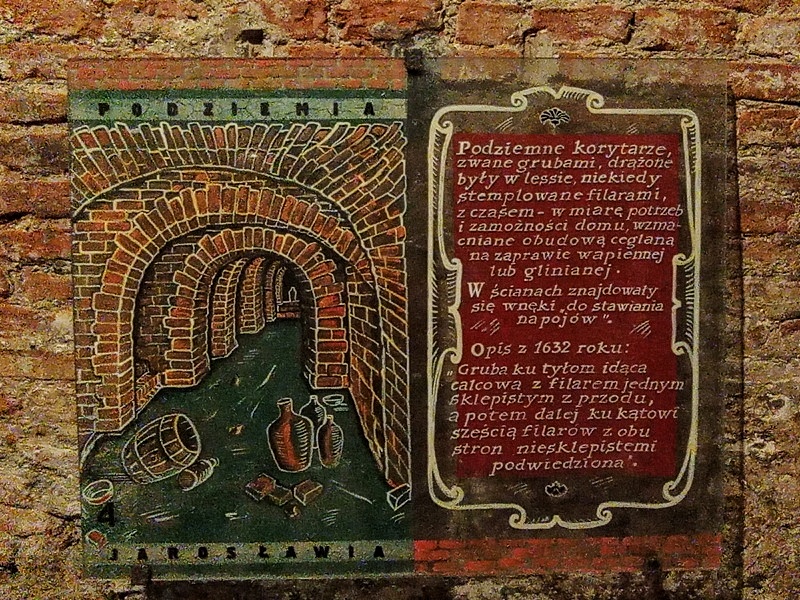 PODZIEMIA
4
JAROSŁAWIA
Podziemne korytarze,
zwane grubami, drążone
były w lessie, niekiedy
stemplowane filarami,
z czasem - w miarę potrzeb
i zamożności domu, wzma-
cniane obudową ceglaną
na zaprawie wapiennej
lub glinianej.
W ścianach znajdowały
się wnęki „do stawiania
napojów".
Opis z 1632 roku:
„Gruba ku tyłom idąca
calcowa z filarem jednym
sklepistym z przodu,
a potem dalej ku kątowi
sześcią filarów z obu
stron niesklepistemi
podwiedziona".